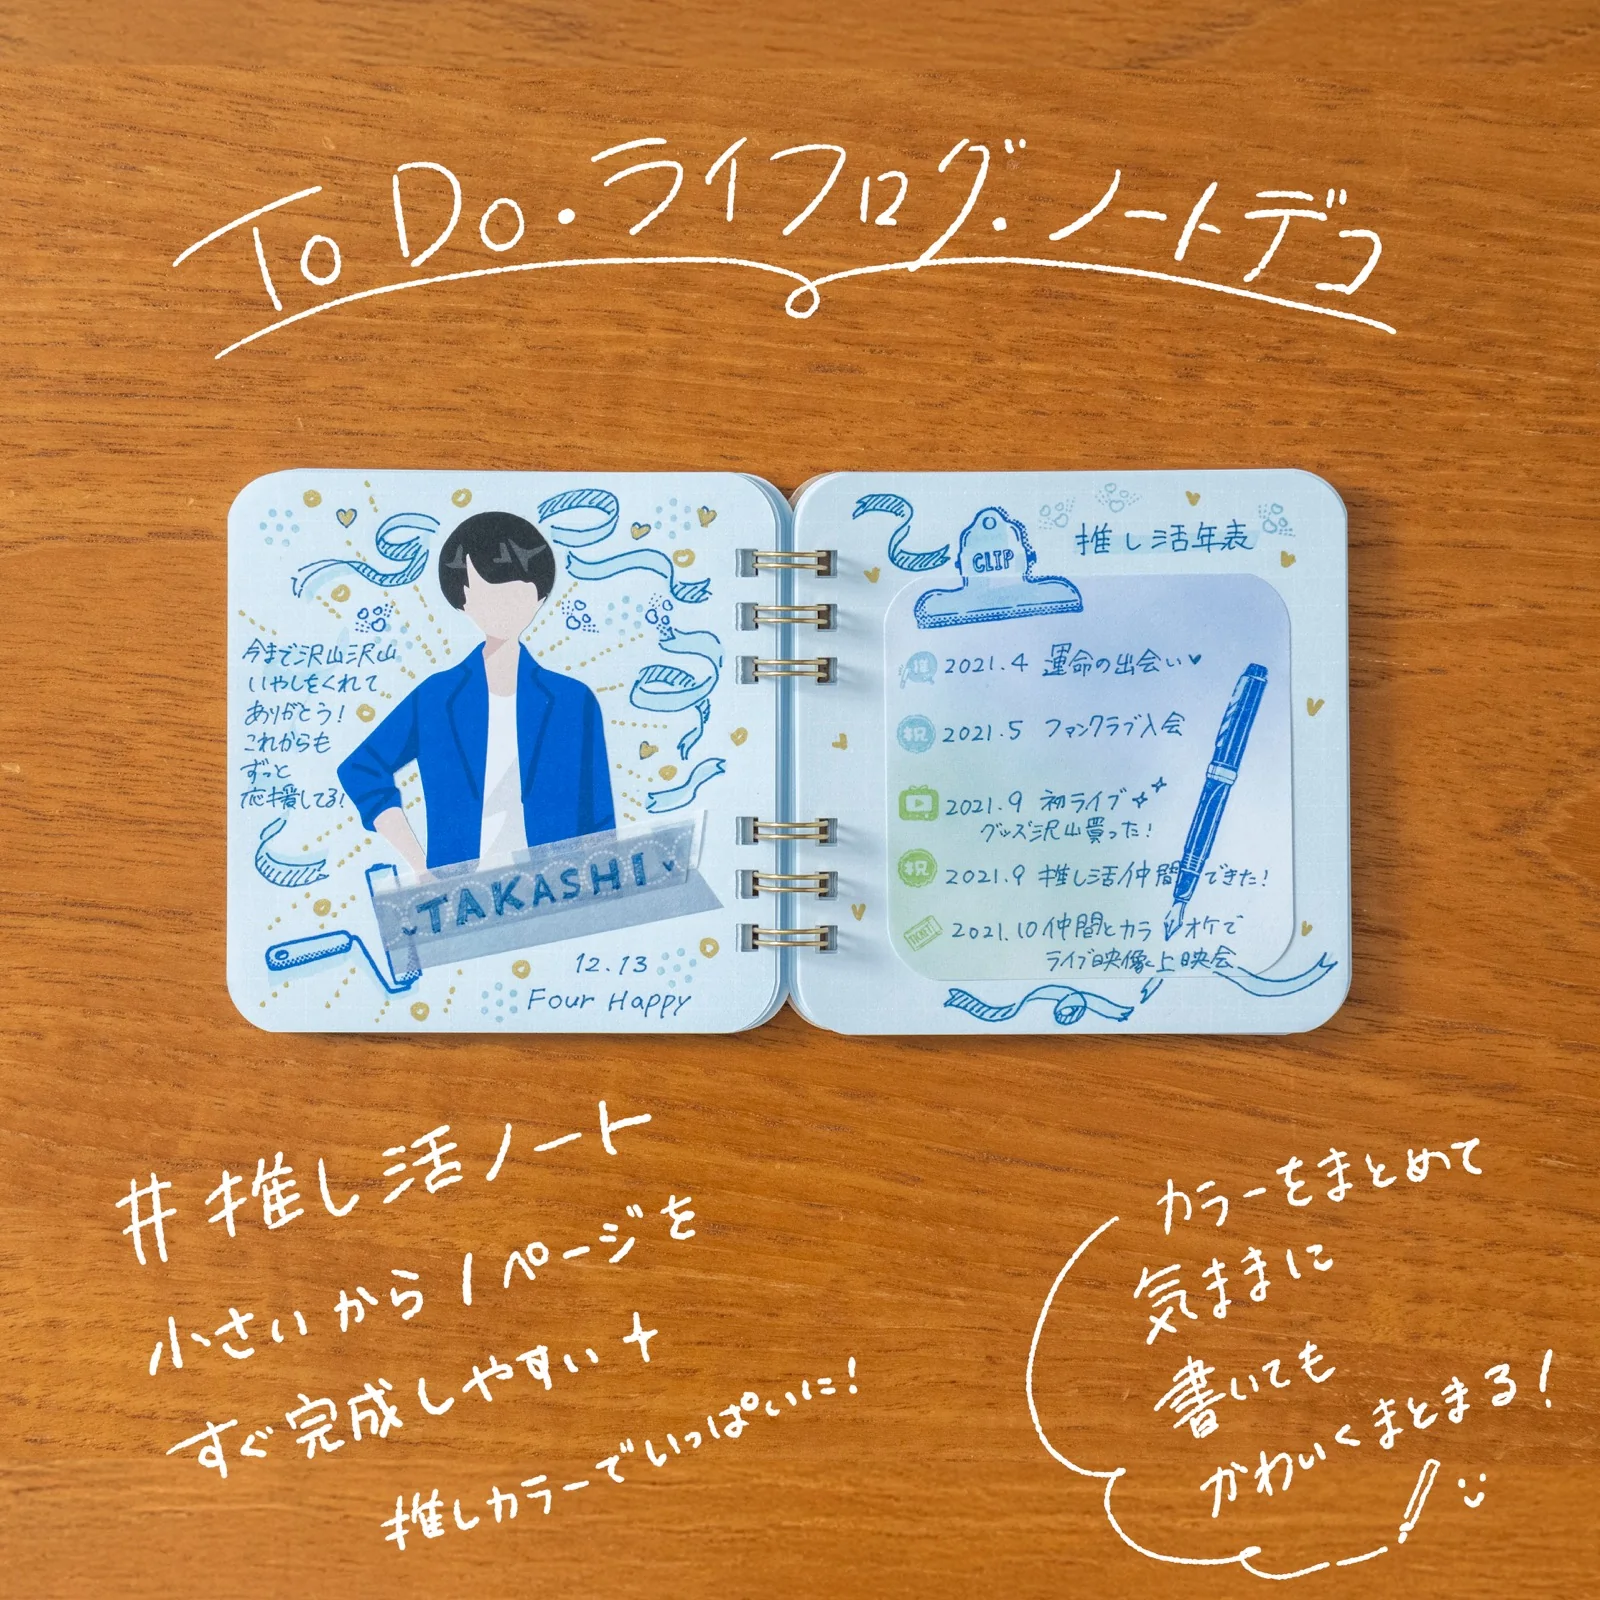 To Do・ライフログ・ノートデコ
今まで沢山沢山
いやしをくれて
ありがとう!
これからも
ずっと
応援してる!
TAKASHI
12.13
Four Happy
CLIP
推し活年表
推 2021.4 運命の出会い♥
祝 2021.5 ファンクラブ入会
2021.9 初ライブ
グッズ沢山買った!
祝 2021.9 推し活仲間できた!
TICKET 2021.10 仲間とカラオケで
ライブ映像上映会
#推し活ノート
小さいから1ページを
すぐ完成しやすい+
推しカラーでいっぱいに!
カラーをまとめて
気ままに
書いても
かわいくまとまる!